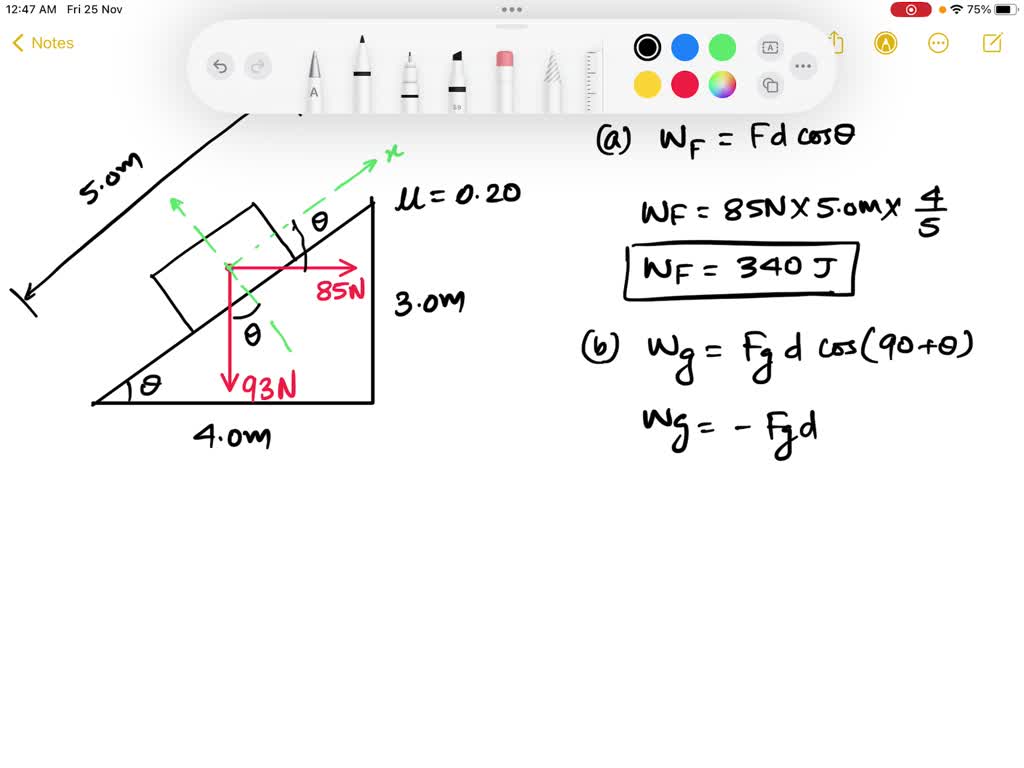 12:47 AM Fri 25 Nov
75%
Notes
A
59
A
5.0m
x
μ = 0.20
θ
85N
3.0m
θ
θ
93N
4.0m
(a) WF = Fd cosθ
WF = 85N × 5.0m × 4/5
WF = 340 J
(b) Wg = Fg d cos(90+θ)
Wg = - Fgd